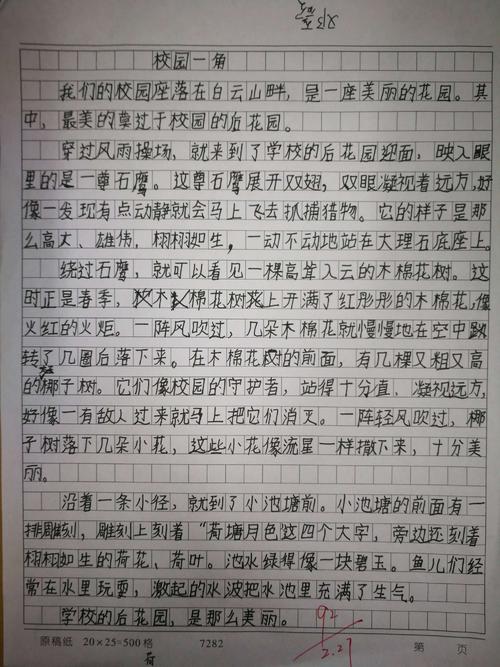 校园一角
我们的校园座落在白云山畔，是一座美丽的花园。其
中，最美的尊过于校园的后花园。
穿过风雨操场，就来到了学校的后花园迎面，映入眼
里的是一尊石鹰。这尊石鹰展开双翅，双眼凝视者远方，好
像一发现有点动静就会马上飞去抓捕猎物。它的样子是那
么高大、雄伟，栩栩如生，一动不动地站在大理石底座上。
绕过石鹰，就可以看见一棵高耸入云的木棉花树。这
时正是春季，木棉花树上开满了红彤彤的木棉花，像
火红的火炬。一阵风吹过，几朵木棉花就慢慢地在空中飘
转了几圈后落下来。在木棉花树的前面，有几棵又粗又高
的椰子树。它们像校园的守护者，站得十分直，凝视远方，
好像一有敌人过来就马上把它们消灭。一阵轻风吹过，椰
子树落下几朵小花，这些小花像流星一样撒下来，十分美
丽。
沿着一条小径，就到了小池塘前。小池塘的前面有一
排雕刻，雕刻上刻着“荷塘月色”这四个大字，旁边还刻着
栩栩如生的荷花、荷叶。池水绿得像一块碧玉。鱼儿们经
常在水里玩耍，激起的水波把水池里充满了生气。
学校的后花园，是那么美丽。
92
2.27
原稿纸 20×25=500格 7282 第 页
荷